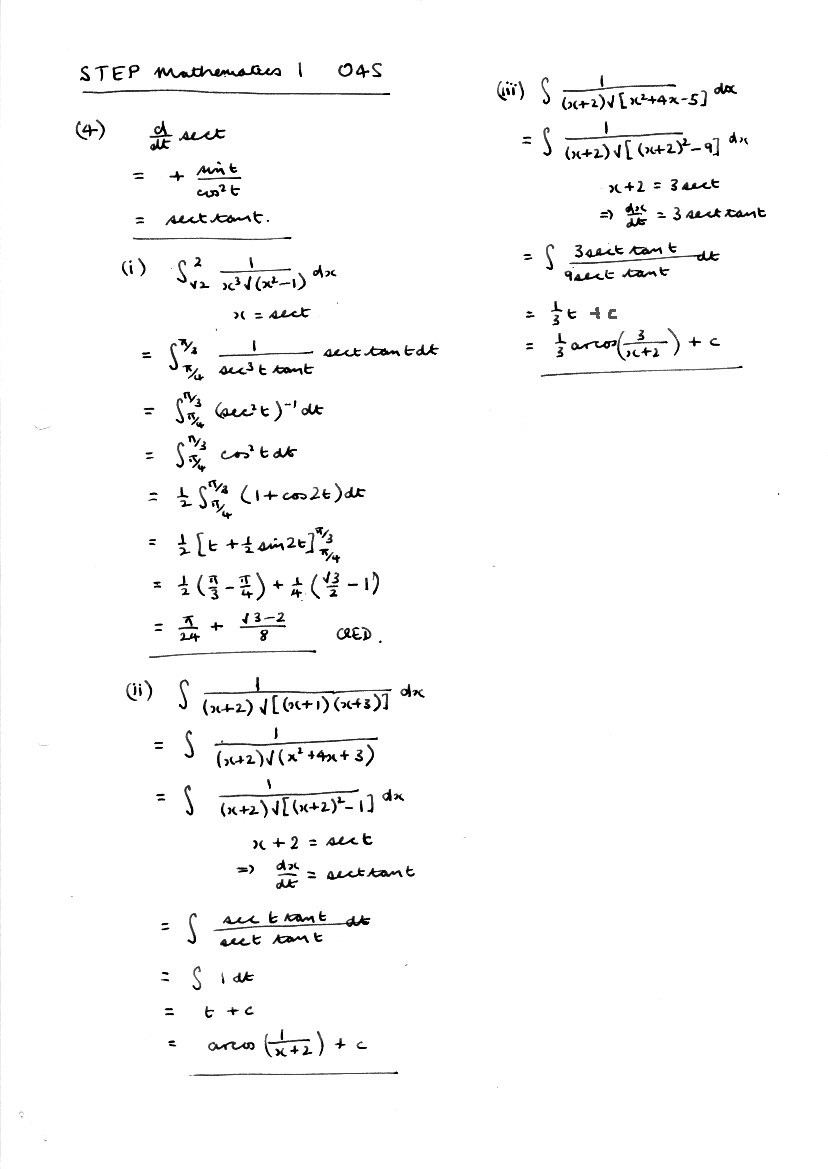 STEP Mathematics 1 04S
(4) d/dt sect
= + sint/cos²t
= sect tant.
(i) ∫_√2^2 1/(x³√(x²-1)) dx
x = sect
= ∫_π/4^π/3 1/(sec³t tant) sect tant dt
= ∫_π/4^π/3 (sec²t)⁻¹ dt
= ∫_π/4^π/3 cos²t dt
= 1/2 ∫_π/4^π/3 (1+cos2t)dt
= 1/2 [t + 1/2 sin2t]_π/4^π/3
= 1/2 (π/3 - π/4) + 1/4 (√3/2 - 1)
= π/24 + (√3-2)/8 QED.
(ii) ∫ 1/((x+2)√[(x+1)(x+3)]) dx
= ∫ 1/((x+2)√(x²+4x+3))
= ∫ 1/((x+2)√[(x+2)²-1]) dx
x+2 = sect
=> dx/dt = sect tant
= ∫ (sec t tant)/(sect tant) dt
= ∫ 1 dt
= t + c
= arcos (1/(x+2)) + c
(iii) ∫ 1/((x+2)√[x²+4x-5]) dx
= ∫ 1/((x+2)√[(x+2)²-9]) dx
x+2 = 3sect
=> dx/dt = 3sect tant
= ∫ (3sect tant)/(9sect tant) dt
= 1/3 t + c
= 1/3 arcos(3/(x+2)) + c